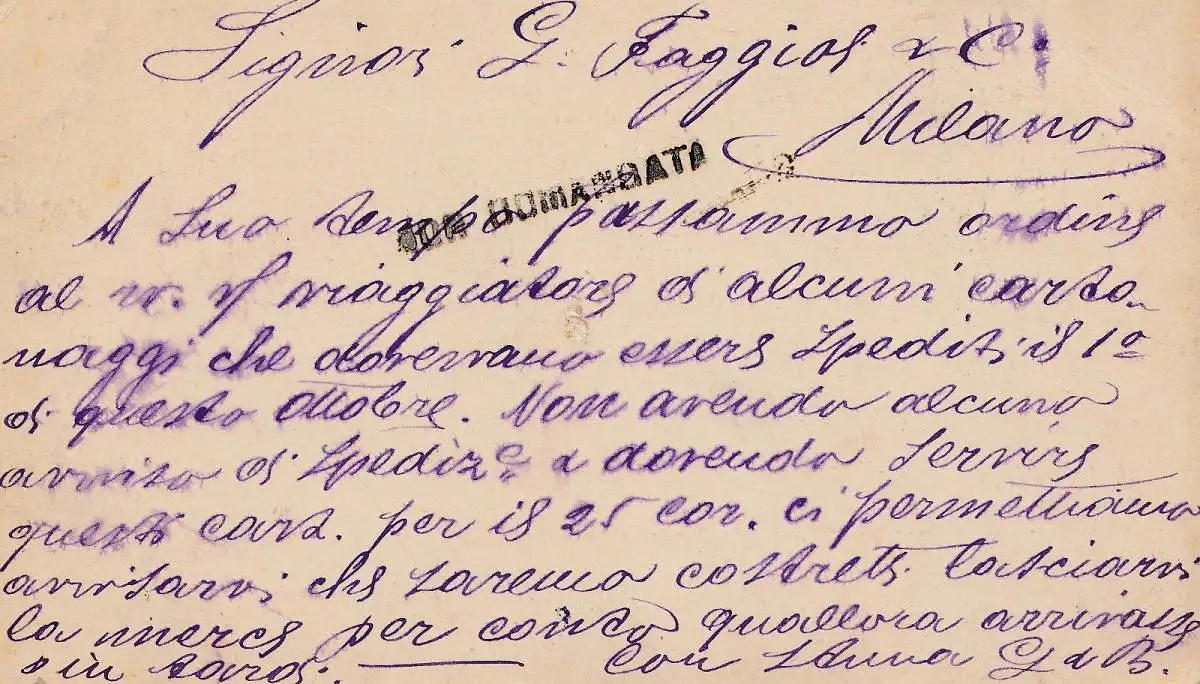 Signori G. Faggioli & C.
Milano
NON DOMANDATA
A Suo tempo passammo ordine
al vs. viaggiatore di alcuni carto-
naggi che dovevano essere spediti il 1º
di questo ottobre. Non avendo alcuno
avviso di spedizᵉ & dovendo servire
questi cart. per il 25 cor. ci permettiamo
avvisarvi che saremo costretti lasciarvi
la merce per conto quallora arrivasse
in tardi.
con stima G & B.